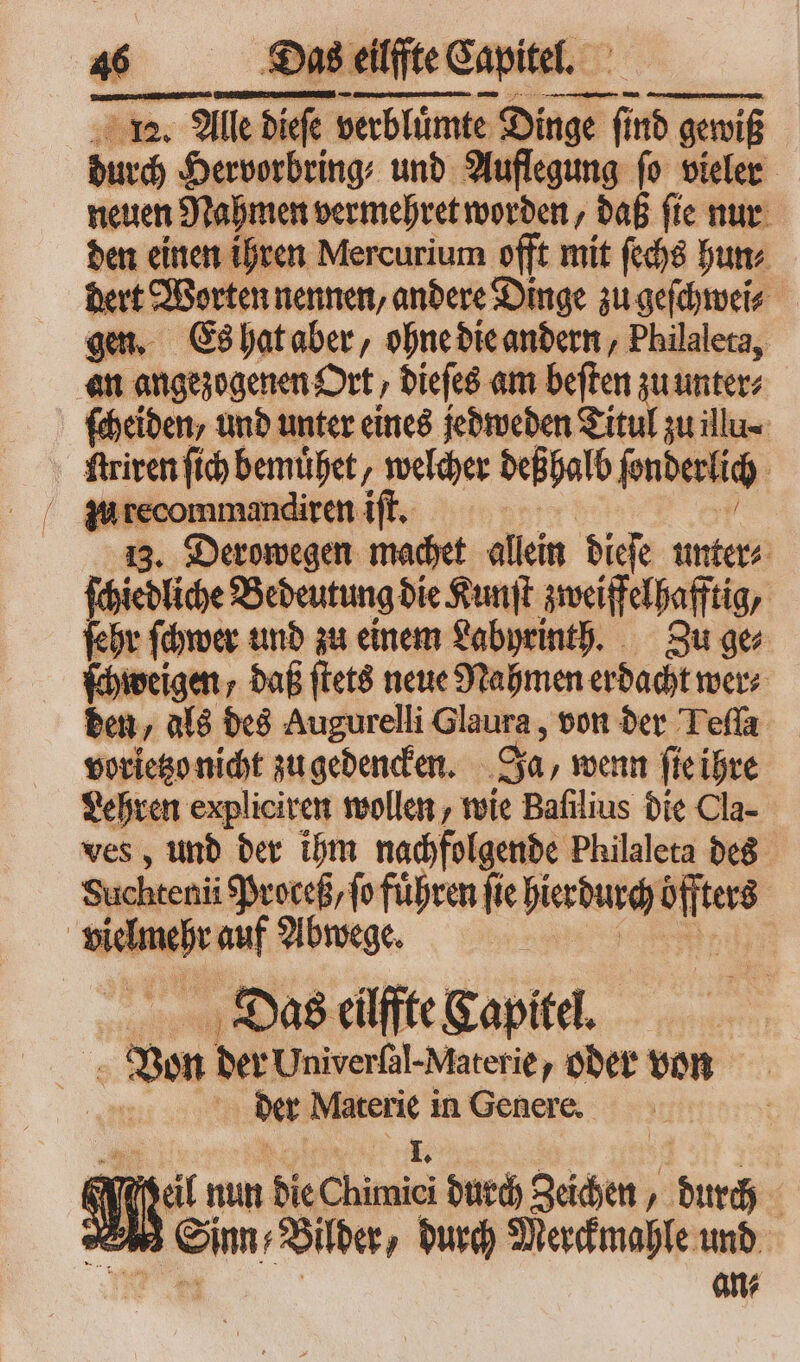 46 Das eilffte Capitel.
12. Alle dieſe verbluͤmte Dinge ſind gewiß
durch Hervorbring⸗ und Auflegung ſo vieler
neuen Nahmen vermehret worden, daß ſie nur
den einen ihren Mercurium offt mit ſechs hun⸗
dert Worten nennen, andere Dinge zu geſchwei⸗
gen. Es hat aber, ohne die andern, Philaleta,
an angezogenen Ort, dieſes am beſten zu unter⸗
ſcheiden, und unter eines jedweden Titul zu illu-
ſtriren ſich bemuͤhet, welcher deßhalb ſonderlich
zu recommandiren iſt.
13. Derowegen machet allein dieſe unter⸗
ſchiedliche Bedeutung die Kunſt zweiffelhafftig,
ſehr ſchwer und zu einem Labyrinth. Zu ge⸗
ſchweigen, daß ſtets neue Nahmen erdacht wer⸗
den, als des Augurelli Glaura, von der Teſſa
vorietzo nicht zu gedencken. Ja, wenn ſie ihre
Lehren expliciren wollen, wie Baſilius die Cla-
ves, und der ihm nachfolgende Philaleta des
Suchtenii Proceß, ſo fuͤhren ſie hierdurch oͤffters
vielmehr auf Abwege.
Das eilffte Capitel.
Von der Univerſal-Materie, oder von
der Materie in Genere.
I.
Weil nun die Chimici durch Zeichen, durch
Sinn⸗Bilder, durch Merckmahle und
an⸗